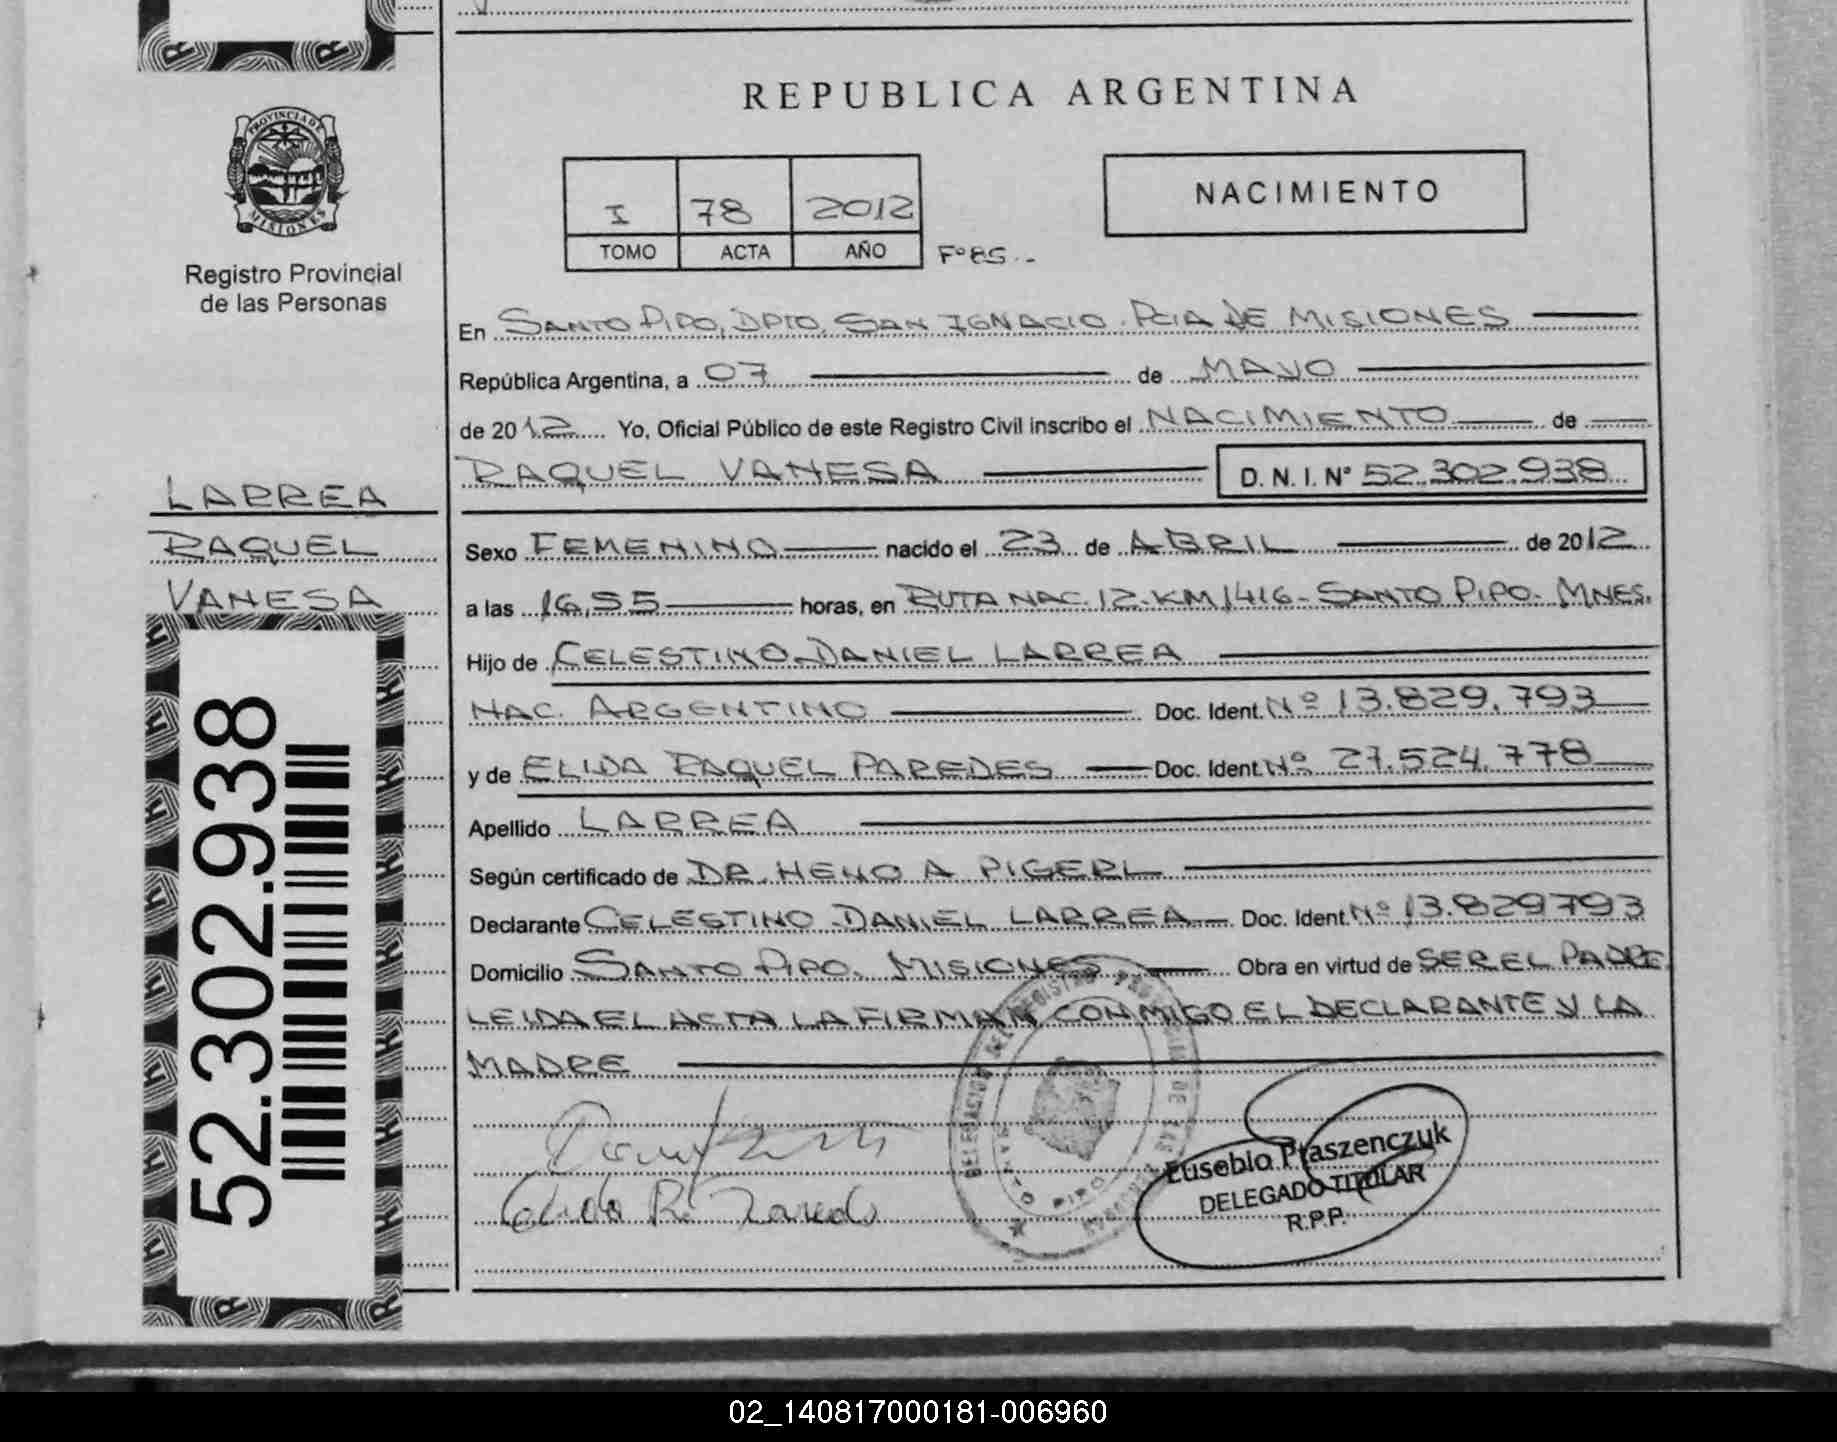 REPUBLICA ARGENTINA
PROVINCIA DE
MISIONES
Registro Provincial
de las Personas
I 78 2012
TOMO ACTA AÑO
Fº 85..
NACIMIENTO
En SANTO PIPO, DPTO. SAN IGNACIO. PCIA DE MISIONES
República Argentina, a 07 de MAYO
de 2012 Yo, Oficial Público de este Registro Civil inscribo el NACIMIENTO de
RAQUEL VANESA D. N. I. Nº 52.302.938
LARREA
RAQUEL
VANESA
52.302.938
Sexo FEMENINO nacido el 23 de ABRIL de 2012
a las 16,55 horas, en RUTA NAC. 12. KM 1416- SANTO PIPO- MNES.
Hijo de CELESTINO DANIEL LARREA
NAC. ARGENTINO Doc. Ident. Nº 13.829.793
y de ELIDA RAQUEL PAREDES Doc. Ident. Nº 27.524.778
Apellido LARREA
Según certificado de DR. HENO A PIGERL
Declarante CELESTINO DANIEL LARREA Doc. Ident. Nº 13.829793
Domicilio SANTO PIPO. MISIONES Obra en virtud de SER EL PADRE
LEIDA EL ACTA LA FIRMAN CONMIGO EL DECLARANTE Y LA
MADRE
DELEGACION DEL REGISTRO PROVINCIAL DE LAS PERSONAS
SANTO PIPO
Eusebio Ptaszenczuk
DELEGADO TITULAR
R.P.P.
02_140817000181-006960